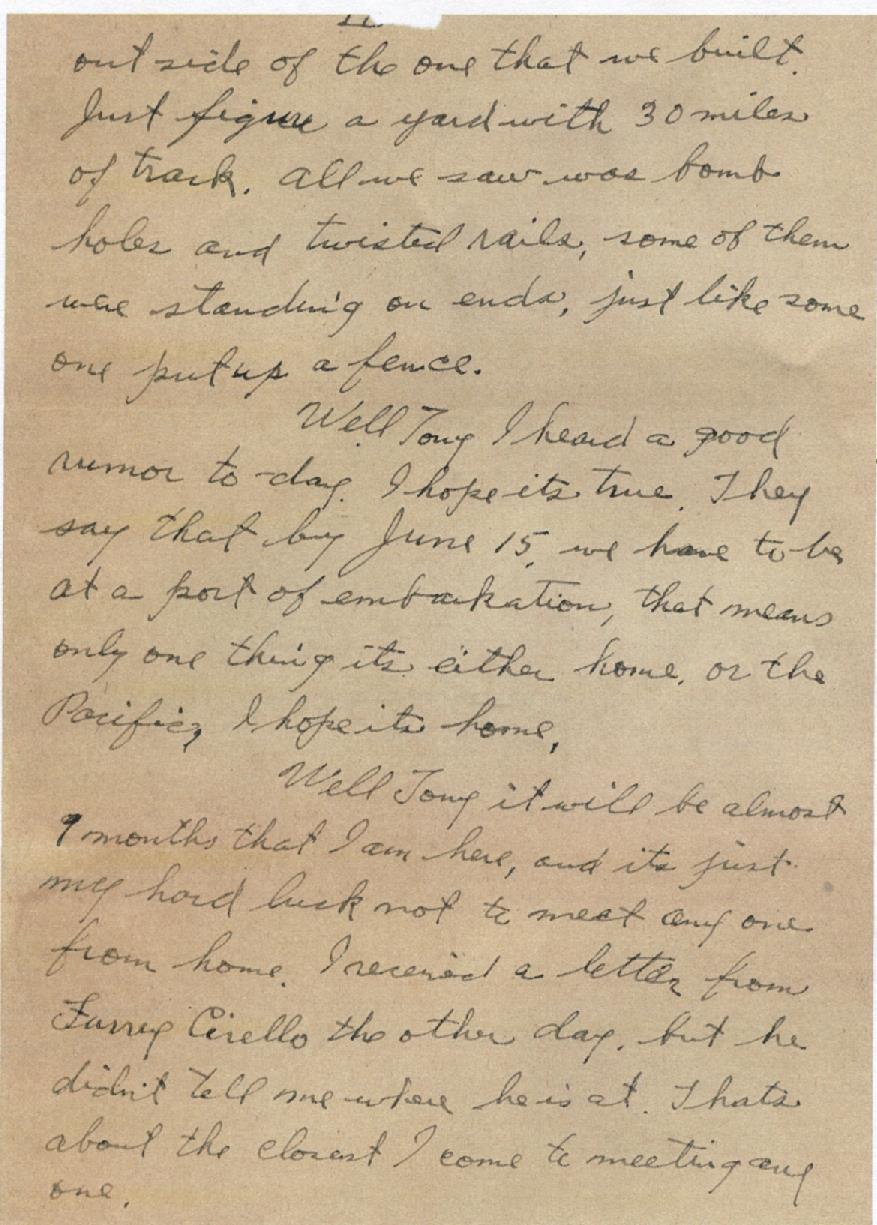 out side of the one that we built.
Just figure a yard with 30 miles
of track. all we saw was bomb
holes and twisted rails, some of them
were standing on ends, just like some
one put up a fence.
Well Tony I heard a good
rumor to-day. I hope its true. They
say that by June 15, we have to be
at a port of embarkation, that means
only one thing its either home, or the
Pacific, I hope its home,
Well Tony it will be almost
9 months that I am here, and its just
my hard luck not to meet any one
from home. I received a letter from
Cirello the other day, but he
didn't tell me where he is at. Thats
about the closest I come to meeting any
one.